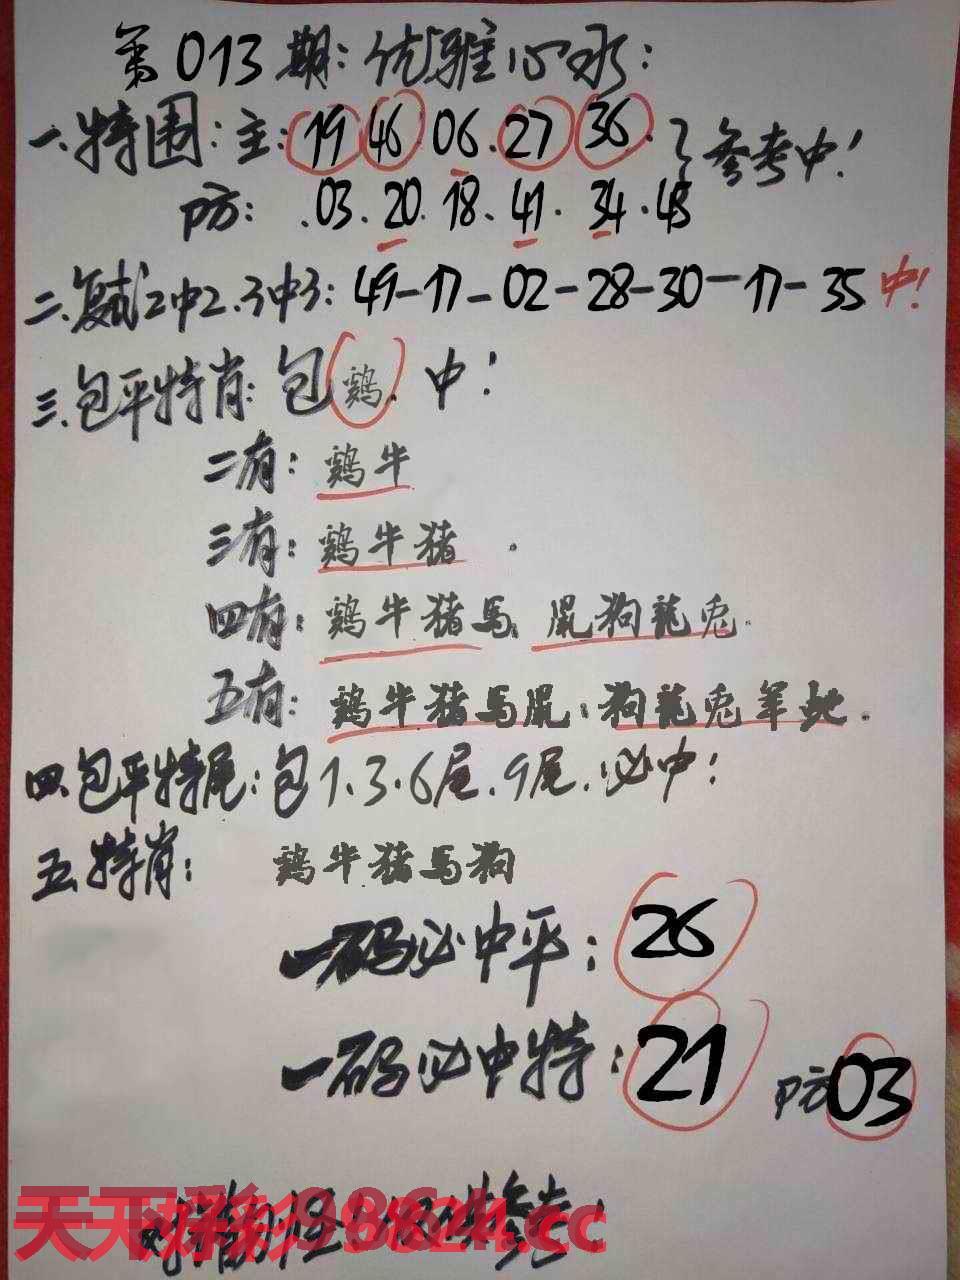 第013期:优雅心水:
一.特围:主:19 46 06.27 36.}参考中!
防:.03.20.18.41.34.45
二.复试2中2.3中3:49-17-02-28-30-17-35中!
三.包平特肖:包鷄.中!
二有:鷄牛
三有:鷄牛猪.
四有:鷄牛猪馬.鼠狗龍兎.
五有:鷄牛猪馬鼠:狗龍兎羊蛇.
四.包平特尾:包1.3.6尾.9尾.必中!
五.特肖:鷄牛猪馬狗
一码必中平:26
一码必中特:21 防03
天天好彩98624.cc